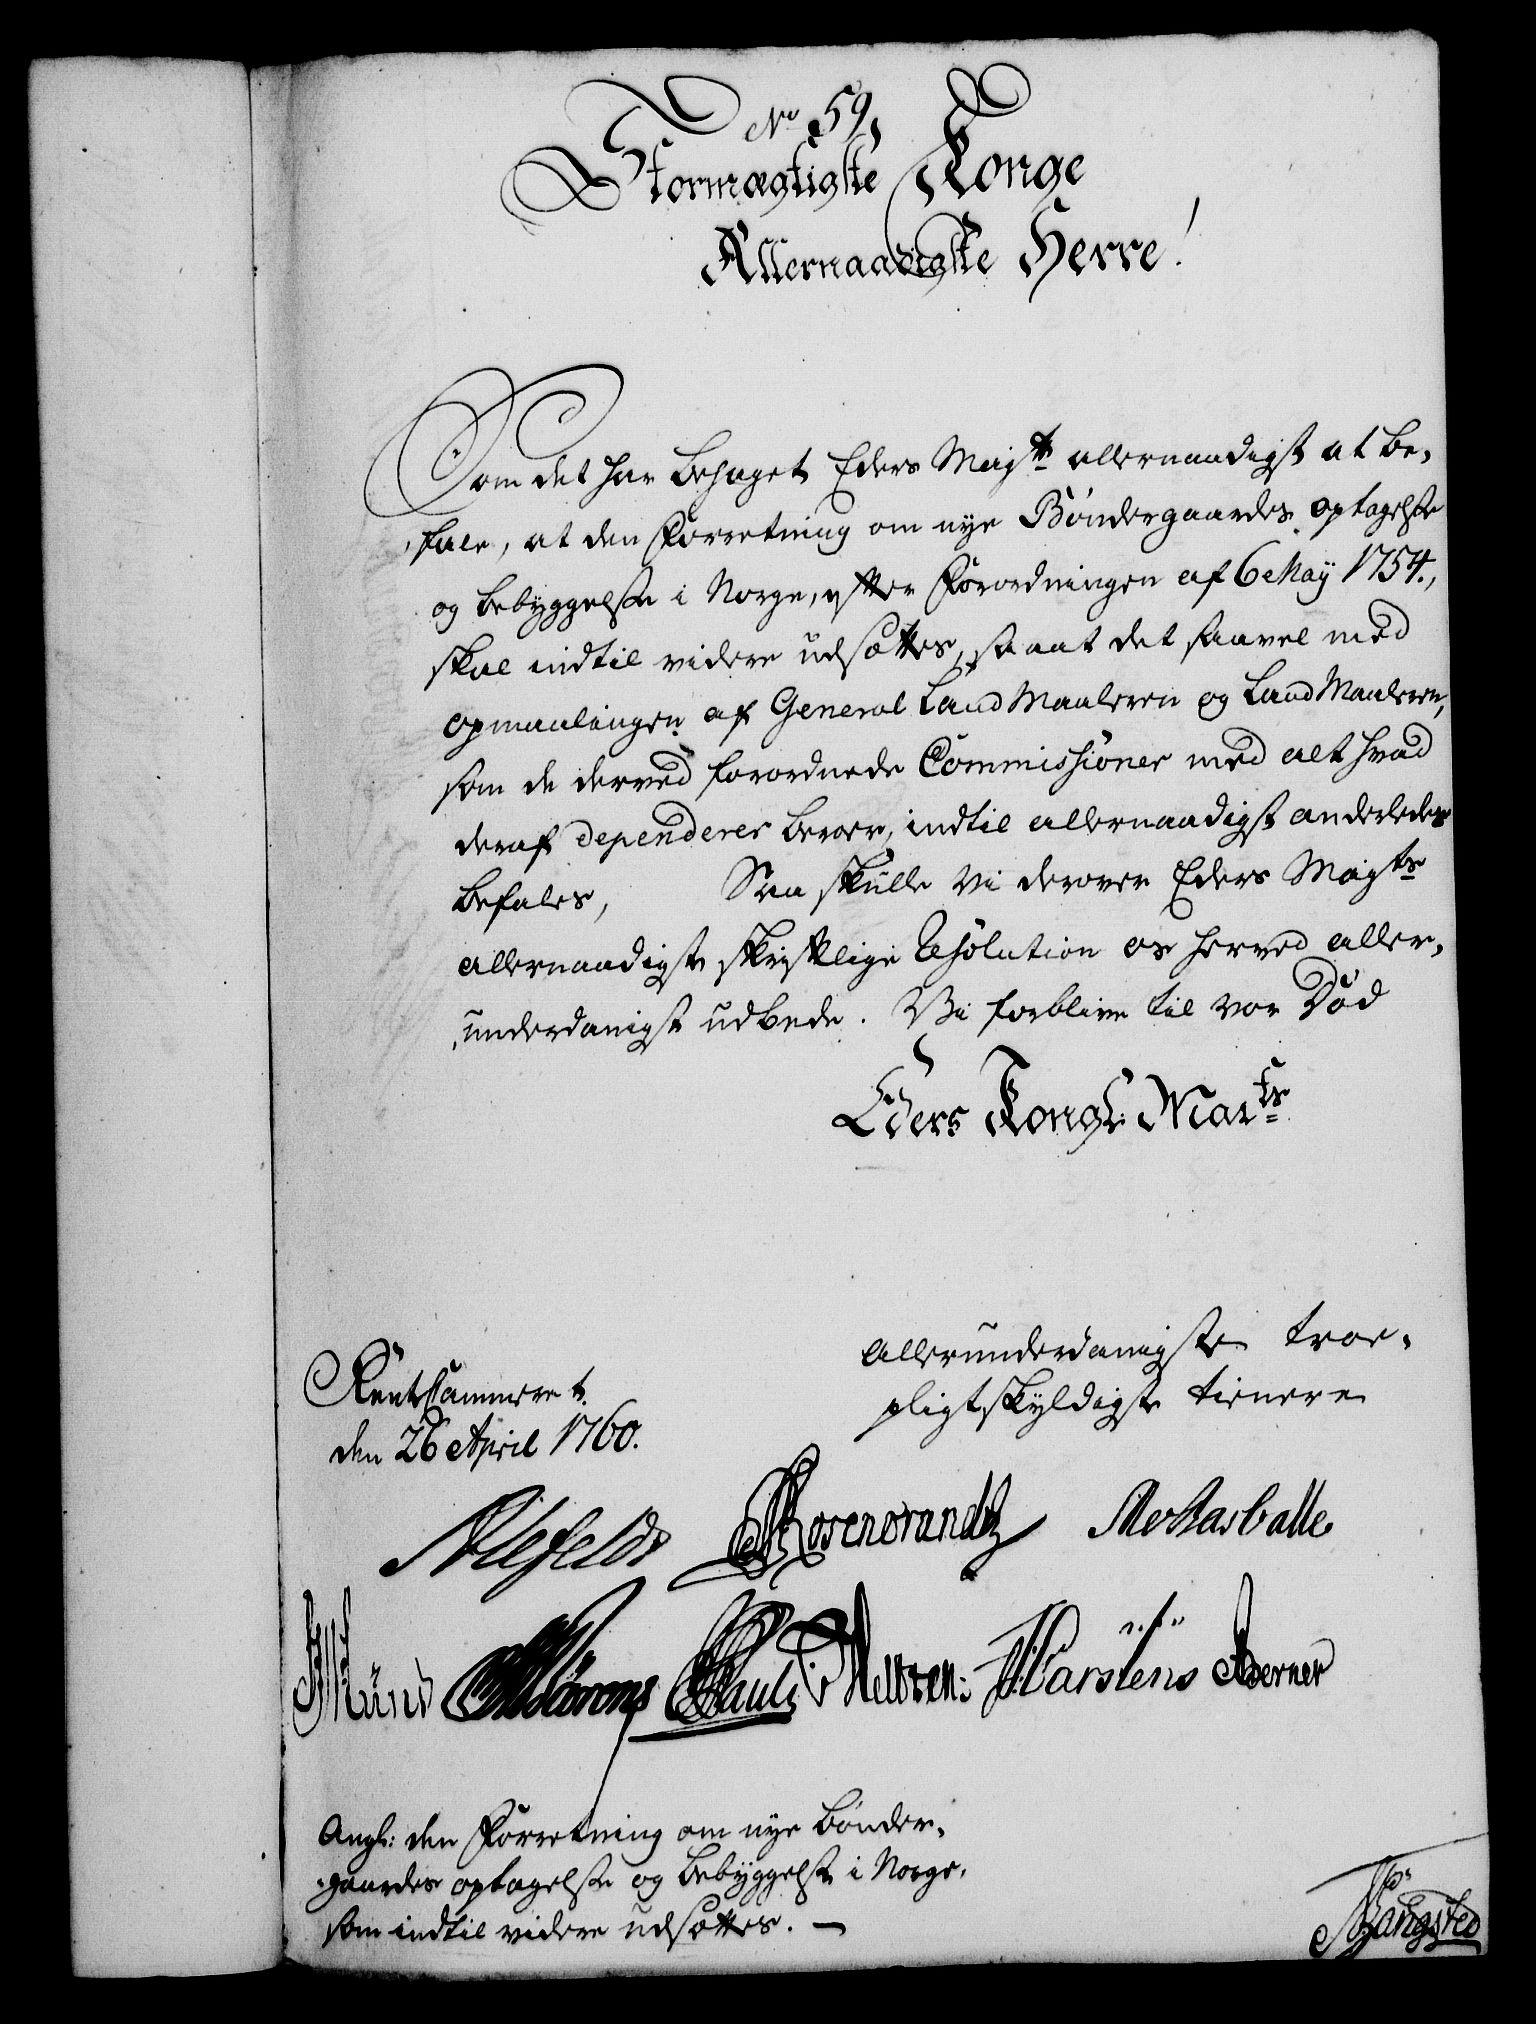 No 59,
Stormægtigste Konge
Allernaadigste Herre!
Som det har behaget Eders Majts allernaadigst at be-
fale, at den Forretning om nye Bøndergaardes optagelse
og bebyggelse i Norge, efter Forordningen af 6 May 1754.,
skal indtil videre udsættes, saa at det saavel med
opmaalingen af General Land Maaleren og Land Maaleren,
som de derved forordnede Commissioner med alt hvad
deraf dependerer beroer, indtil allernaadigst anderledes
befales, Saa skulle Vi derover Eders Mayts
allernaadigste skriftlige Resolution os herved aller-
underdanigst udbede. Vi forblive til vor Død
Eders Kongl: Mayts
Allerunderdanigste troe-
pligtskyldigste tienere
RenteCammeret
den 26 April 1760.
Ahlefeldt Rosencrandtz
Pauli Carstens Berner
Angl: den Forretning om nye Bønder-
gaardes optagelse og bebyggelse i Norge,
som indtil videre udsættes. —
Bangsted